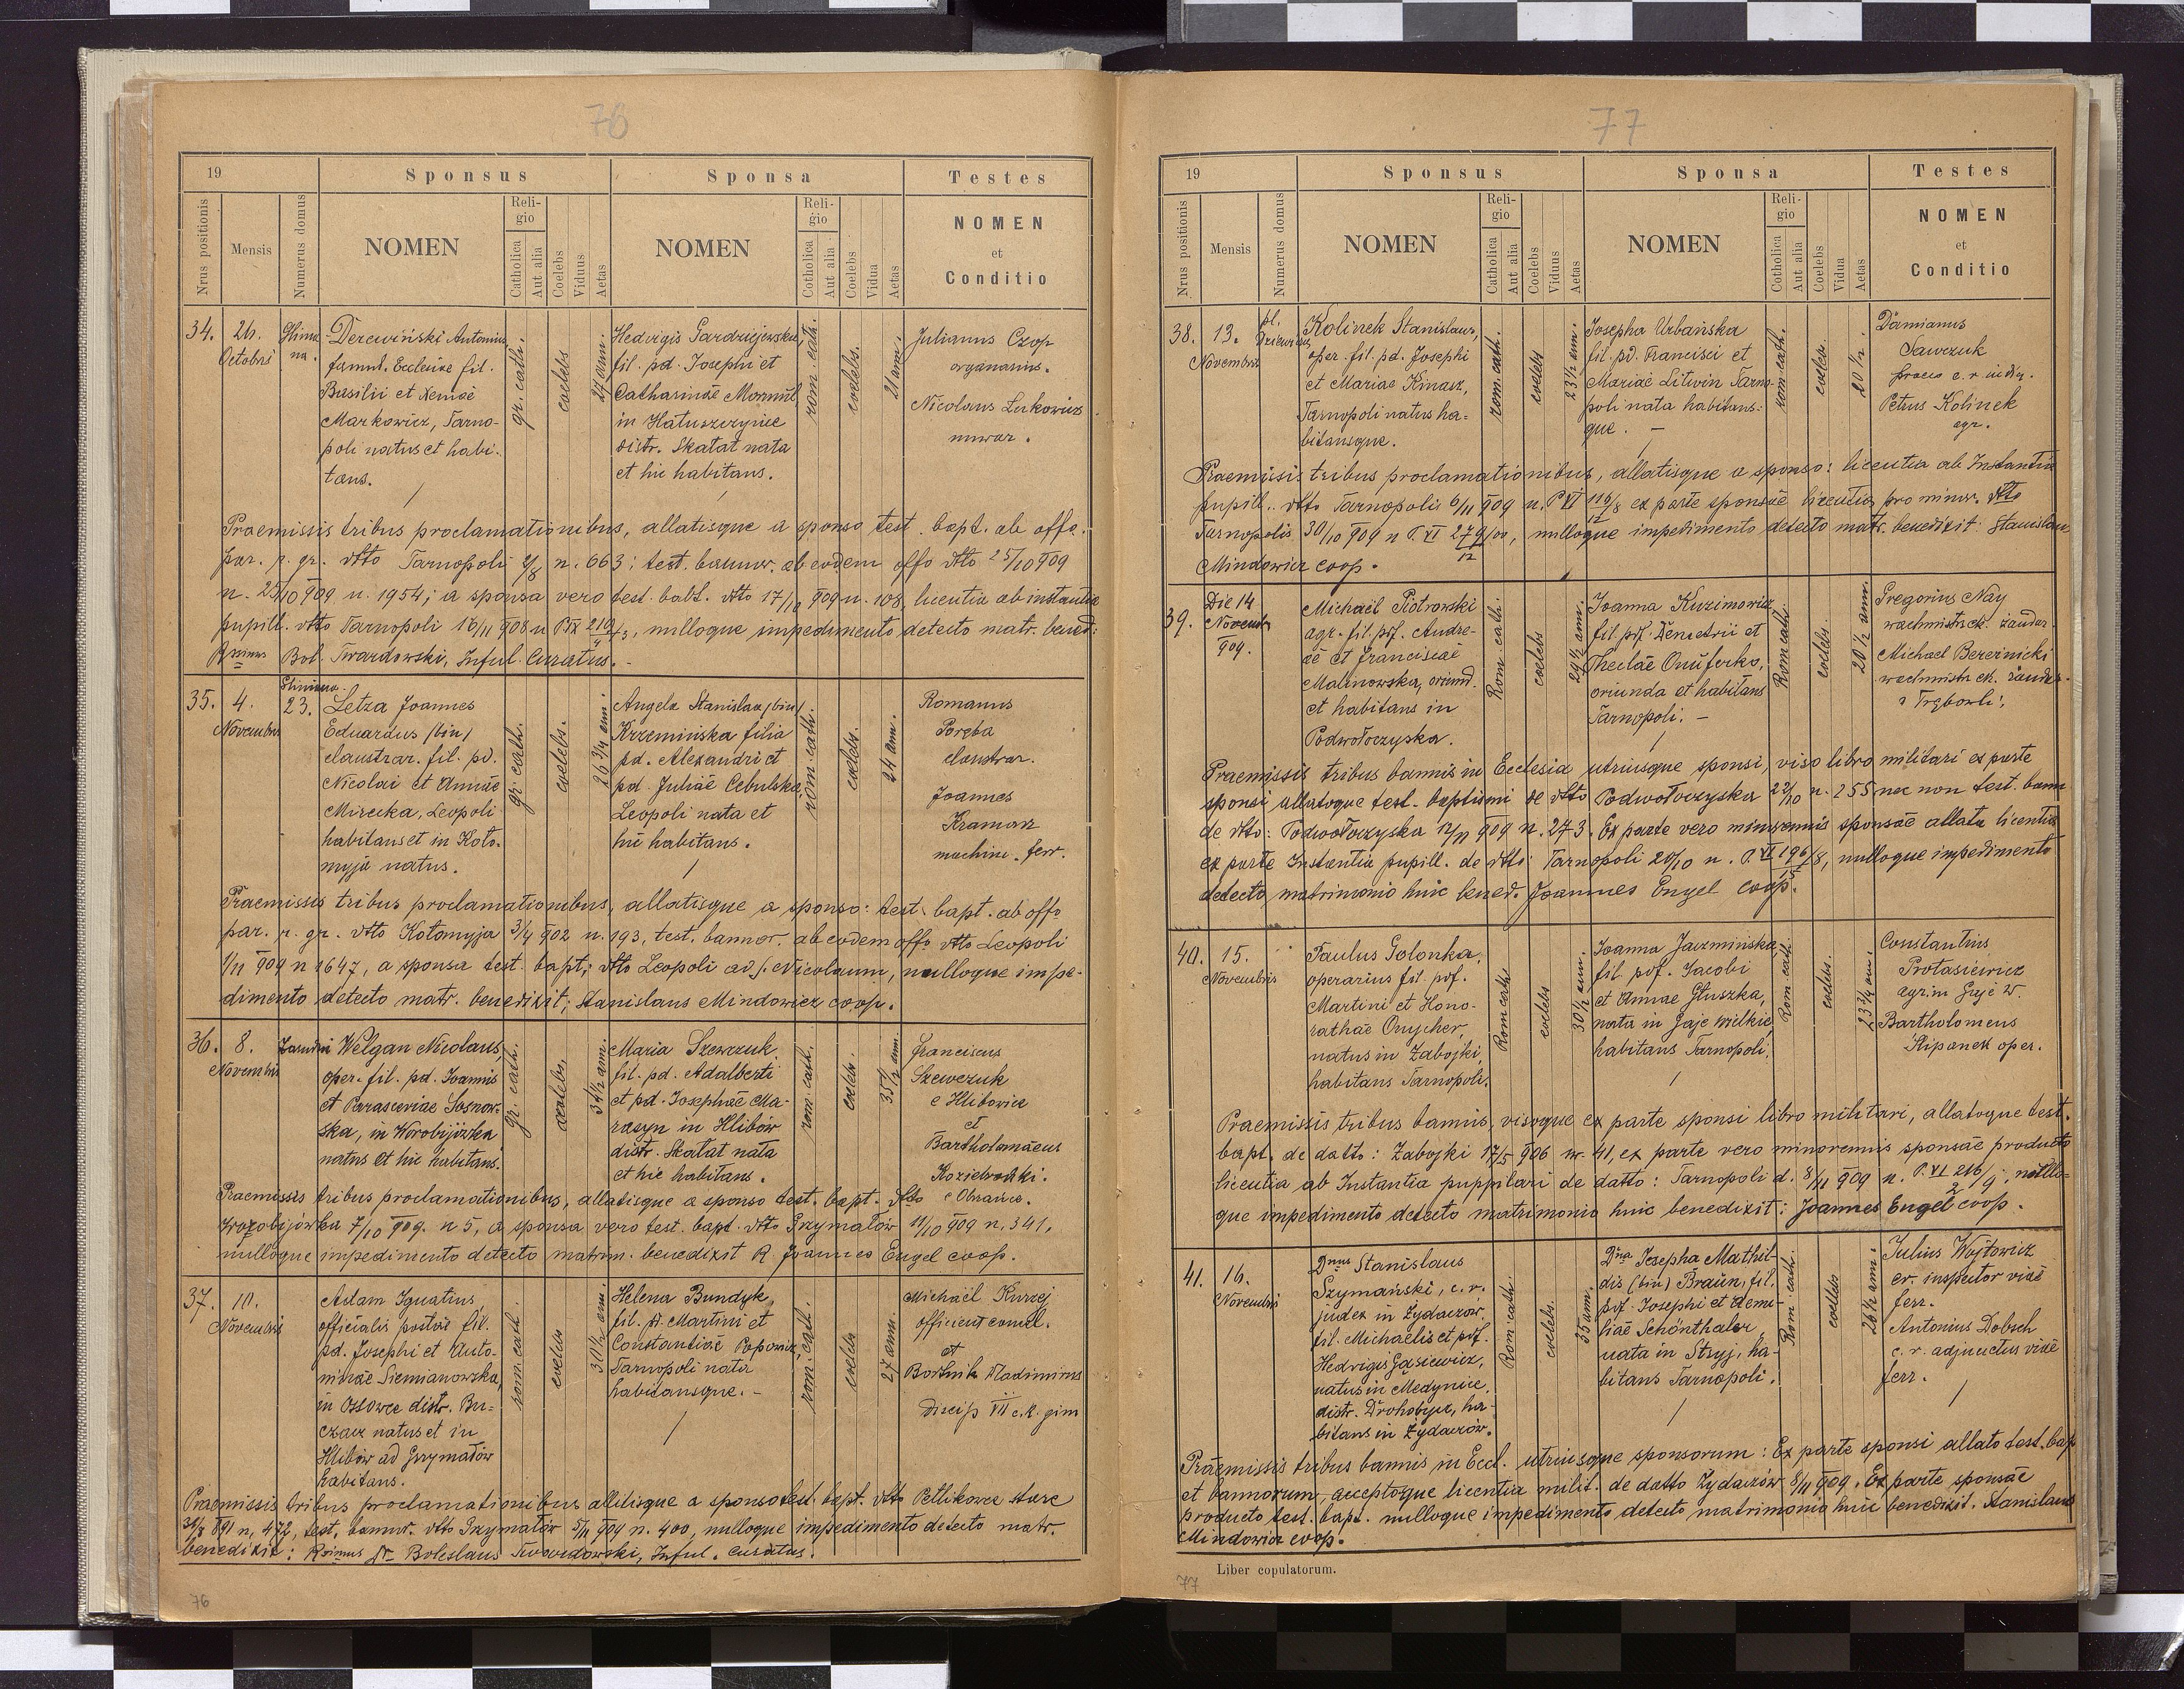 76
19
Sponsus
Sponsa
Testes
Nrus positionis
Mensis
Numerus domus
NOMEN
Religio
Catholica
Aut alia
Coelebs
Viduus
Aetas
NOMEN
Religio
Catholica
Aut alia
Coelebs
Vidua
Aetas
NOMEN
et
Conditio
34.
26.
Octobris
Derewiński Antonius
famul. Ecclesiae fil.
Basilii et Xeniae
Markowicz, Tarno-
poli natus et habi-
tans.
gr. cath.
coelebs
27 ann.
Hedvigis Gardziejewska
fil. pd. Josephi et
Catharinae
in Hałuszczyńce
distr. Skałat nata
et hic habitans.
rom. cath.
coelebs.
21 ann.
Julianus Czop
organarius.
Nicolaus Lukowicz
murar.
Praemissis tribus proclamationibus, allatisque a sponso test. bapt. ab offo.
par. r. gr. dtto Tarnopoli n. 663; test. bannor. ab eodem offo dtto 25/10 909
n. 1954; a sponsa vero test. bapt. dtto 17/10 909 n. 108, licentia ab instantia
pupill. dtto Tarnopoli 16/11 908 n nulloque impedimento detecto matr. bened:
Rssimus Bol. Twardowski, Inful. Curatus.-
35.
4.
Novembris
23.
Letza Joannes
Eduardus (bin)
claustrar. fil. pd.
Nicolai et Annae
Mirecka, Leopoli
habitans et in Koło-
myja natus.
gr. cath.
coelebs.
26 3/4 ann
Angela Stanislaa (bin)
Krzemińska filia
pd. Alexandri et
pd. Juliae Cebulska
Leopoli nata et
hic habitans.
rom. cath.
coelebs.
24 ann.
Romanus
Poręba
claustrar.
Joannes
Kramarz
machin. ferr.
Praemissis tribus proclamationibus, allatisque a sponso: test. bapt. ab offo
par. r. gr. dtto Kołomyja 3/4 902 n. 193, test. bannor. ab eodem offo dtto Leopoli
1/11 909 n 1647, a sponsa test. bapt; dtto Leopoli ad s. Nicolaum, nulloque impe-
dimento detecto matr. benedixit; Stanislaus Mindowicz coop.
36.
8.
Novembris
Welgan Nicolaus,
oper. fil. pd. Joannis
et Parasceviae Sosnow-
ska, in Worobijówka
natus et hic habitans.
gr. cath.
coelebs.
34 1/2 ann.
Maria Szewczuk
fil. pd. Adalberti
et pd. Josephae Ma-
rasyn in Hlibów
distr. Skałat nata
et hic habitans.
rom. cath.
coelebs.
35 1/2 ann.
Franciscus
Szewczuk
e Hlibowice
et
Bartholomaeus
Praemissis tribus proclamationibus, allatisque a sponso test. bapt. dtto
Worobijówka 7/10 909. n 5, a sponsa vero test. bapt. dtto Grzymałów 11/10 909 n. 341,
nulloque impedimento detecto matrim. benedixit R. Joannes Engel coop.
37.
10.
Novembris
Adam Ignatius,
officialis postae fil.
pd. Josephi et Anto-
ninae Siemianowska,
in Ossowce distr. Bu-
czacz natus et in
Hlibów ad Grzymałów
habitans.
rom. cath.
coelebs
30 1/2 ann
Helena Bundyk,
fil. Martini et
Constantiae Papowicz,
Tarnopoli nata
habitansque.-
rom. cath.
coelebs
27 ann.
Michael Kurzej
et
Bortnik Wladimirus
discip VII c.k. gim
Praemissis tribus proclamationibus allatisque a sponso test. bapt. dtto Petlikowce stare
31/8 891 n. 472, test. bannor. dtto Grzymałów 5/11 909 n. 400, nulloque impedimento detecto matr.
benedixit: Rssimus Dr Boleslaus Twardowski, Inful. Curatus.
76
77
19
Sponsus
Sponsa
Testes
Nrus positionis
Mensis
Numerus domus
NOMEN
Religio
Catholica
Aut alia
Coelebs
Viduus
Aetas
NOMEN
Religio
Catholica
Aut alia
Coelebs
Vidua
Aetas
NOMEN
et
Conditio
38.
13.
Novembris
Kolinek Stanislaus,
oper. fil. pd. Josephi
et Mariae Kinasz,
Tarnopoli natus ha-
bitansque.
rom. cath.
coelebs
23 1/2 ann.
Josepha Urbańska
fil. pd. Francisci et
Mariae Litwin Tarno-
poli nata habitans-
que. -
rom. cath.
coelebs.
20 1/2
Damianus
Sawczuk
Petrus Kolinek
agr.
Praemissis tribus proclamationibus, allatisque a sponso: licentia ab Instantia
pupill. dtto Tarnopolis 6/11 909 n. P VI 116/8 12 ex parte sponsae licentia pro minor. dtto
Tarnopolis 30/10 909 n P. VI nulloque impedimento detecto matr. benedixit: Stanislaus
Mindowicz coop.
39.
Die 14
Novembr.
909.
Michaël Piotrowski
agr. fil. pdf. Andre-
ae et Franciscae
Malinowska, oriund.
et habitans in
Podwołoczyska.
Rom. cath.
coelebs
29 1/2 ann.
Joanna Kuzimowicz,
fil. pdf. Demetrii et
Theclae Onuferko,
oriunda et habitans
Tarnopoli. -
Rom cath.
coelebs.
20 1/2 ann.
Gregorius Nay
Michael Bereznicki
Praemissis tribus bannis in Ecclesia utriusque sponsi, viso libro militari ex parte
sponsi allatoque test. baptismi de dtto Podwołoczyska 22/10 n. 255 nec non test. bann.
de dtto: Podwołoczyska 12/11 909 n. 273. Ex parte vero minorennis sponsae allata licentia
ex parte Instantia pupill. de dtto: Tarnopoli 20/10 n. P. VI 196/8, nulloque impedimento
detecto, matrimonio huic bened. Joannes Engel coop.
40.
15.
Novembris
Paulus Golonka,
operarius fil. pdf.
Martini et Hono-
rathae Onycher,
natus in Zabojki,
habitans Tarnopoli.
Rom cath.
coelebs
30 1/2 ann.
Joanna Jaczmińska,
fil. pdf. Jacobi
et Annae Głuszka,
nata in Gaje wielkie
habitans Tarnopoli.
Rom. cath.
coelebs.
23 3/4 ann.
Constantius
Protasiewicz
agr. in Gaje W.
Bartholomeus
Stipanek oper.
Praemissis tribus bannis, visoque ex parte sponsi libro militari, allatoque test.
bapt. de datto: Zabojki 17/5 906 nr. 41, ex parte vero minorennis sponsae producto
licentia ab Instantia puppilari de datto: Tarnopoli d. 8/11 909 n. P. VI 216/9 2, nullo-
que impedimento detecto matrimonio huic benedixit: Joannes Engel coop.
41.
16.
Novembris
Dnus Stanislaus
Szymański, c. r.
judex in Żydaczów
fil. Michaelis et pdf.
Hedvigis Gąsiewicz,
natus in Medynice,
distr. Drohobycz, ha-
bitans in Żydaczów.
Rom cath
coelebs.
35 ann.
Dna Josepha Mathil-
dis (bin) Braun, fil.
pdf. Josephi et Aemi-
liae Schönthaler,
nata in Stryj, ha-
bitans Tarnopoli.
Rom. cath.
coelebs
26 1/2 ann.
Julius Wojtowicz
cr. inspector viae
ferr.
Antonius Dobsch
c. r. adjunctus viae
ferr.
Praemissis tribus bannis in Eccl. utriusque sponsorum: Ex parte sponsi allato test. bap
et bannorum, acceptoque licentia milit. de datto Żydaczów 8/11 909. Ex parte sponsae
producto test. bapt. nulloque impedimento detecto matrimonio huic benedixit. Stanislaus
Mindowicz coop.
Liber copulatorum.
77